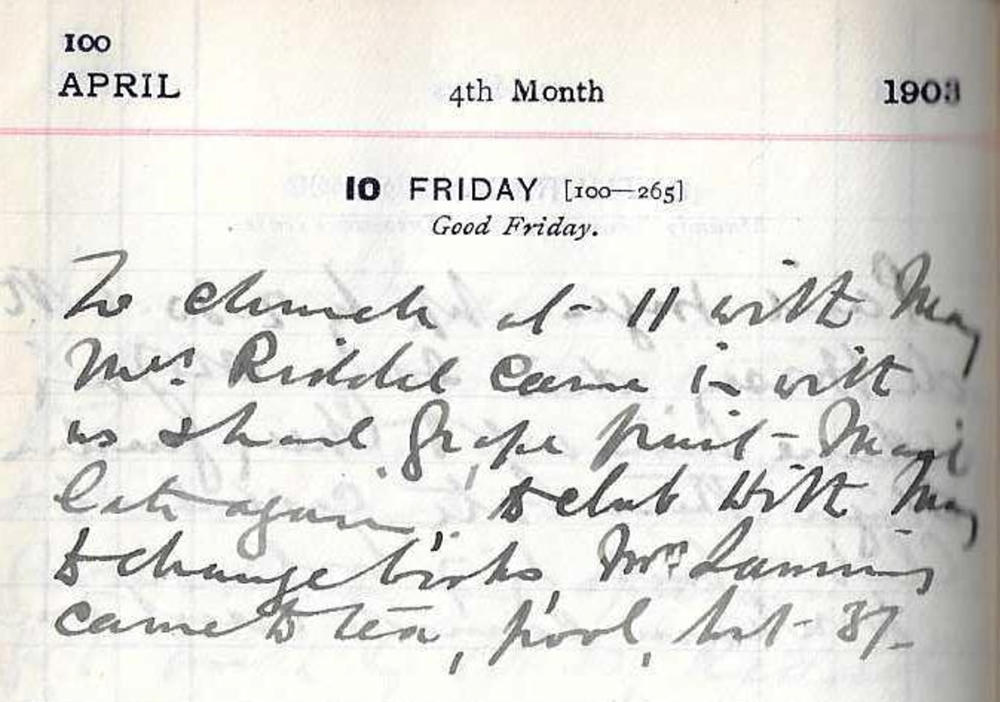 100
APRIL 4th Month 1903
10 FRIDAY [100—265]
Good Friday.
To church at 11 with May
Mrs. Riddel came in with
us & had grape fruit - Mail
late again, to club with May
to change books, Mrs Lanning
came to tea, pool, lost 3/-